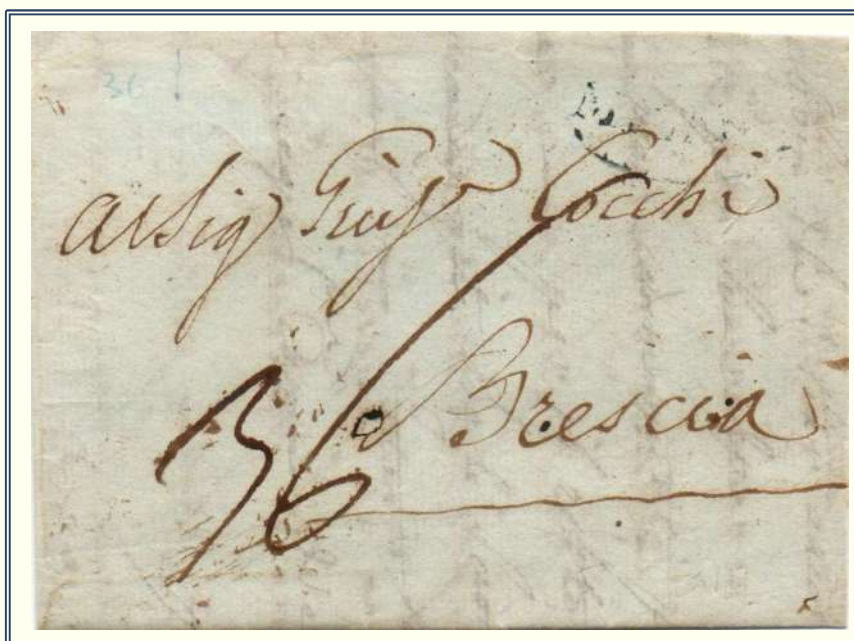 36
Al Sig Giusᵉ Cocchi
Brescia
36